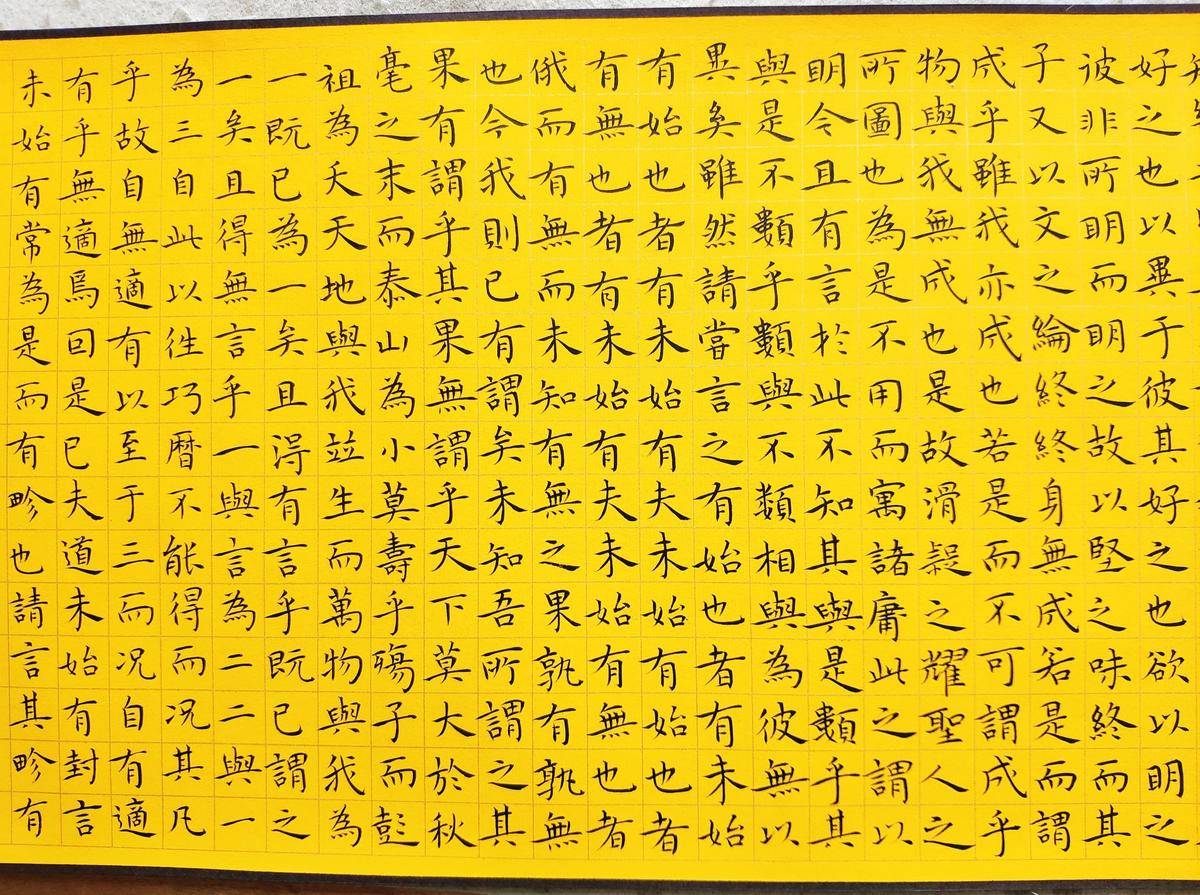 好之也以異于彼其好之也欲以明之
彼非所明而明之故以堅之味終而其
子又以文之綸終終身無成若是而謂
成乎雖我亦成也若是而不可謂成乎
物與我無成也是故滑疑之耀聖人之
所圖也為是不用而寓諸庸此之謂以
明今且有言於此不知其與是類乎其
與是不類乎類與不類相與為彼無以
異矣雖然請嘗言之有始也者有未始
有始也者有未始有夫未始有始也者
有無也者有未始有夫未始有無也者
俄而有無而未知有無之果孰有孰無
也今我則已有謂矣未知吾所謂之其
果有謂乎其果無謂乎天下莫大於秋
毫之末而泰山為小莫壽乎殤子而彭
祖為夭天地與我並生而萬物與我為
一既已為一矣且得有言乎既已謂之
一矣且得無言乎一與言為二二與一
為三自此以往巧暦不能得而况其凡
乎故自無適有以至于三而况自有適
有乎無適焉因是已夫道未始有封言
未始有常為是而有畛也請言其畛有